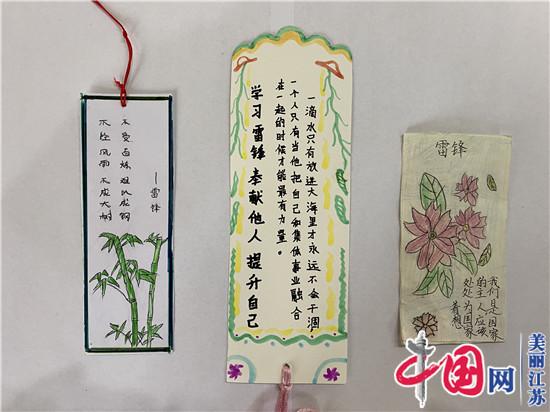 不经风雨 不成大树
不受百炼 难以成钢
——雷锋
一滴水只有放进大海里才永远不会干涸,
一个人只有当他把自己和集体事业融合
在一起的时候才能最有力量。
学习雷锋 奉献他人 提升自己
雷锋
我们是国家
的主人应该
处处为国家
着想
中国网
美丽江苏